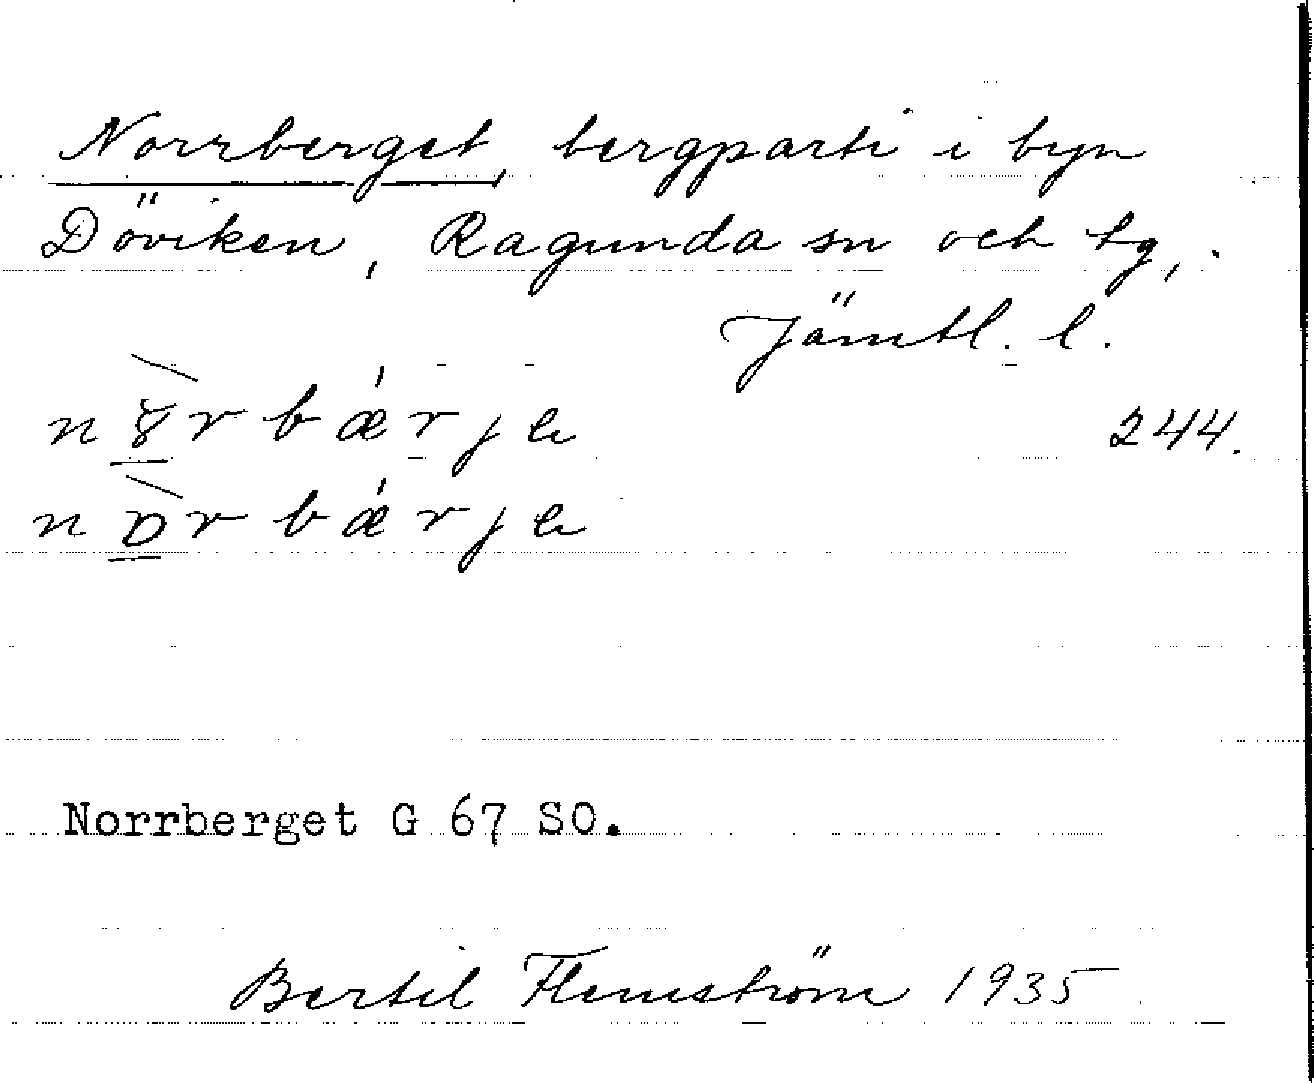 Norrberget, bergparti i byn
Döviken, Ragunda sn och tg,
Jämtl. l.
bǽrje 244.
bǽrje
Norrberget G 67 SO.
Bertil Flemström 1935